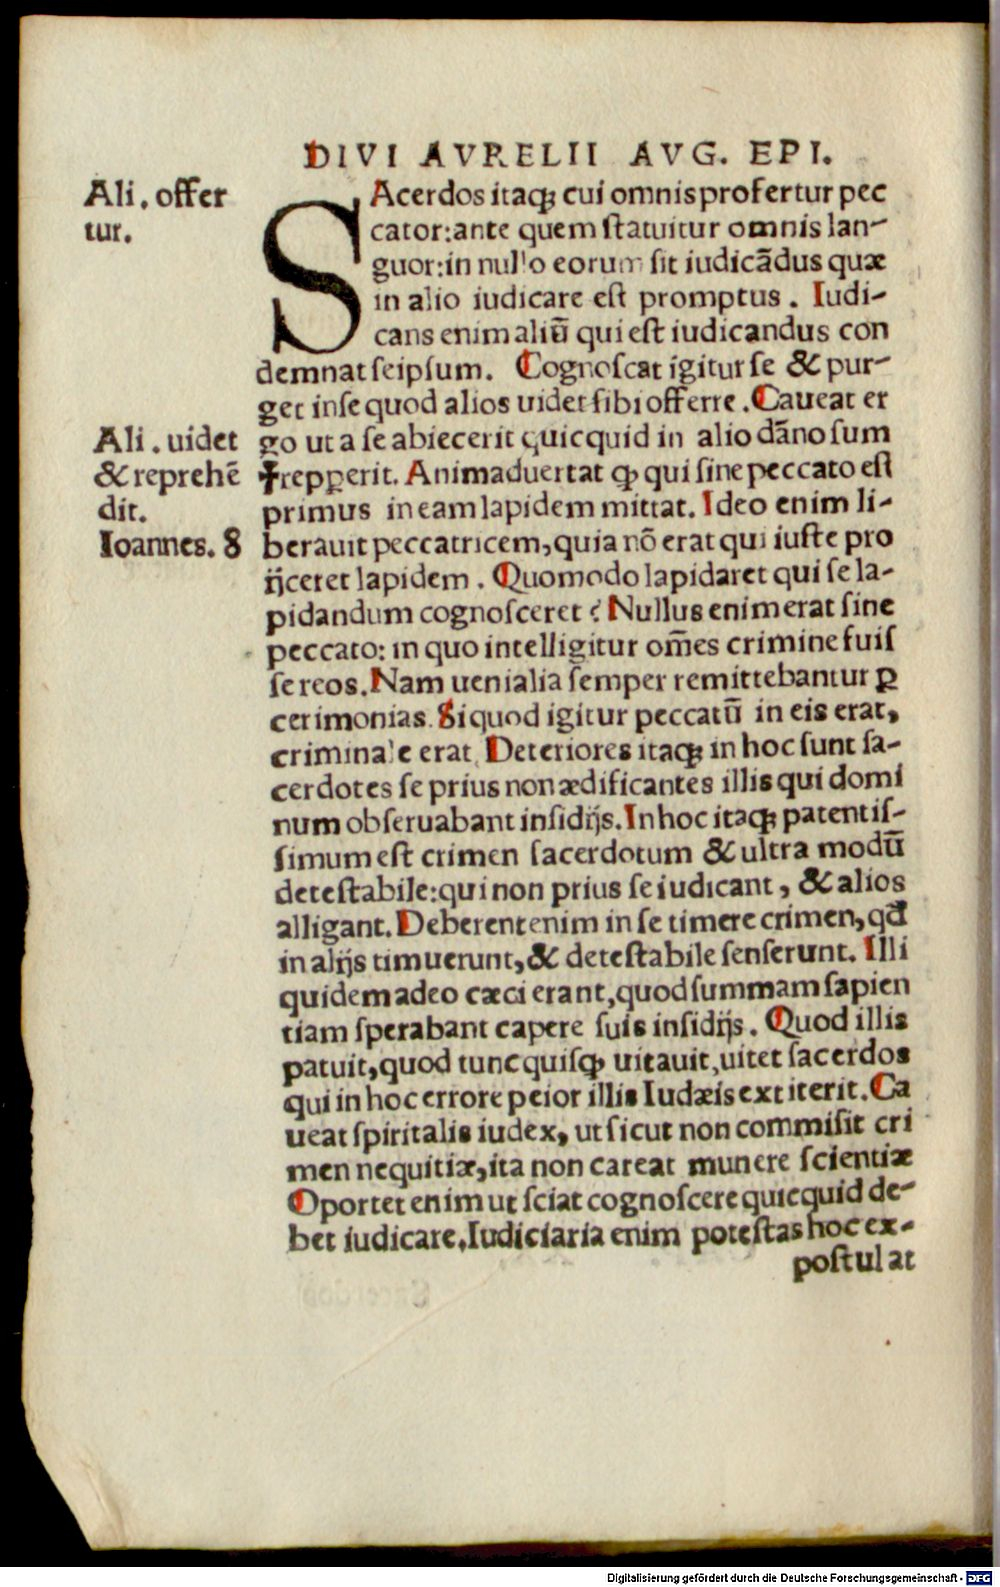 DIVI AVRELII AVG. EPI.
Ali. offer
tur.
SAcerdos itaqꝫ cui omnis profertur pec
cator: ante quem ſtatuitur omnis lan-
guor: in nullo eorum ſit iudicãdus quæ
in alio iudicare eſt promptus. Iudi-
cans enim aliũ qui eſt iudicandus con
demnat ſeipſum. Cognoſcat igitur ſe & pur-
get in ſe quod alios uidet ſibi offerre. Caueat er
Ali. uidet
& reprehẽ
dit.
Ioannes. 8
go ut a ſe abiecerit quicquid in alio dãnoſum
✝repꝑerit. Animaduertat ꝙ qui ſine peccato eſt
primus in eam lapidem mittat. Ideo enim li-
berauit peccatricem, quia nõ erat qui iuſte pro
ijceret lapidem. Quomodo lapidaret qui ſe la-
pidandum cognoſceret? Nullus enim erat ſine
peccato: in quo intelligitur om̃es crimine fuiſ
ſe reos. Nam uenialia ſemper remittebantur ꝑ
cerimonias. Si quod igitur peccatũ in eis erat,
criminale erat. Deteriores itaqꝫ in hoc ſunt ſa-
cerdotes ſe prius non ædificantes illis qui domi
num obſeruabant inſidijs. In hoc itaqꝫ patentiſ-
ſimum eſt crimen ſacerdotum & ultra modũ
deteſtabile: qui non prius ſe iudicant, & alios
alligant. Deberent enim in ſe timere crimen, qđ
in alijs timuerunt, & deteſtabile ſenſerunt. Illi
quidem adeo cæci erant, quod ſummam ſapien
tiam ſperabant capere ſuis inſidijs. Quod illis
patuit, quod tunc quiſqꝫ uitauit, uitet ſacerdos
qui in hoc errore peior illis Iudæis extiterit. Ca
ueat ſpiritalis iudex, ut ſicut non commiſit cri
men nequitiæ, ita non careat munere ſcientiæ
Oportet enim ut ſciat cognoſcere quicquid de-
bet iudicare. Iudiciaria enim poteſtas hoc ex-
poſtulat
Digitalisierung gefördert durch die Deutsche Forschungsgemeinschaft - DFG